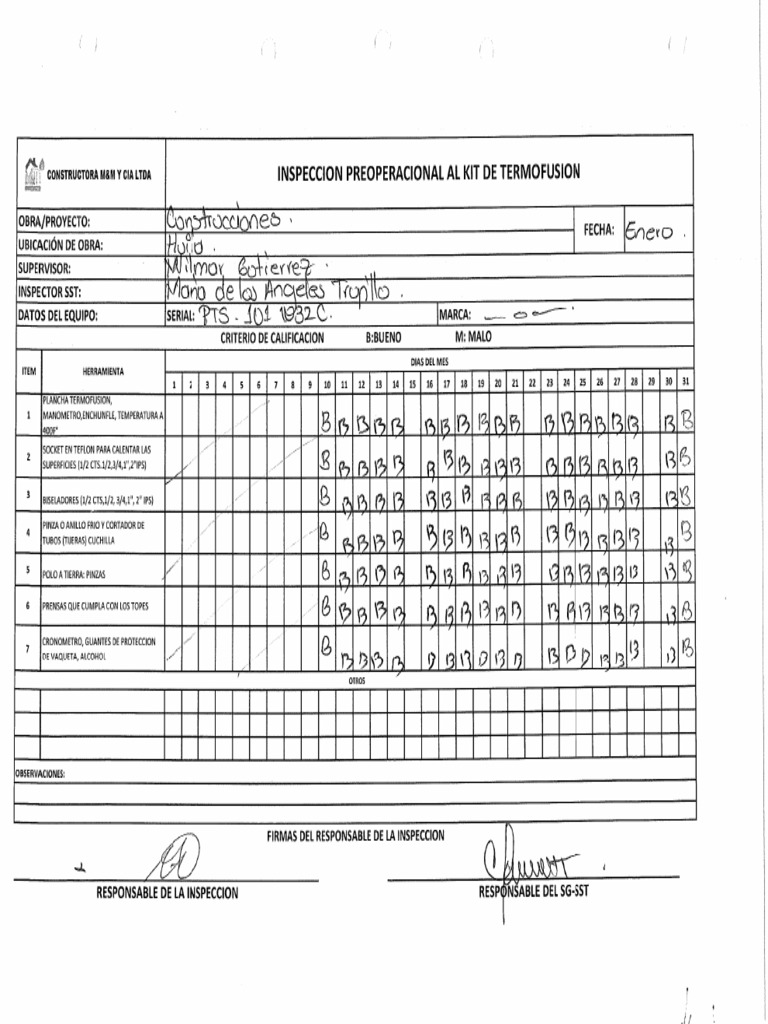 CONSTRUCTORA M&M Y CIA LTDA
INSPECCION PREOPERACIONAL AL KIT DE TERMOFUSION
OBRA/PROYECTO: Construcciones.
FECHA: Enero.
UBICACIÓN DE OBRA: Huila.
SUPERVISOR: Wilmar Gutierrez.
INSPECTOR SST: Maria de los Angeles Trujillo.
DATOS DEL EQUIPO: SERIAL: PTS. 101 1932C. MARCA:
CRITERIO DE CALIFICACION B:BUENO M: MALO
ITEM HERRAMIENTA DIAS DEL MES
1 2 3 4 5 6 7 8 9 10 11 12 13 14 15 16 17 18 19 20 21 22 23 24 25 26 27 28 29 30 31
PLANCHA TERMOFUSION,
1 MANOMETRO,ENCHUNFLE, TEMPERATURA A B B B B B B B B B B B B B B B B B B B
400F°
SOCKET EN TEFLON PARA CALENTAR LAS
2 SUPERFICIES (1/2 CTS.1/2,3/4,1",2"IPS) B B B B B B B B B B B B B B B B B B B
3 BISELADORES (1/2 CTS,1/2, 3/4,1", 2" IPS) B B B B B B B B B B B B B B B B B B B
PINZA O ANILLO FRIO Y CORTADOR DE
4 TUBOS (TIJERAS) CUCHILLA B B B B B B B B B B B B B B B B B B B
5 POLO A TIERRA: PINZAS B B B B B B B B B B B B B B B B B B B
6 PRENSAS QUE CUMPLA CON LOS TOPES B B B B B B B B B B B B B B B B B B B
CRONOMETRO, GUANTES DE PROTECCION
7 DE VAQUETA, ALCOHOL B B B B B B B B B B B B B B B B B B B
OTROS
OBSERVACIONES:
FIRMAS DEL RESPONSABLE DE LA INSPECCION
RESPONSABLE DE LA INSPECCION RESPONSABLE DEL SG-SST